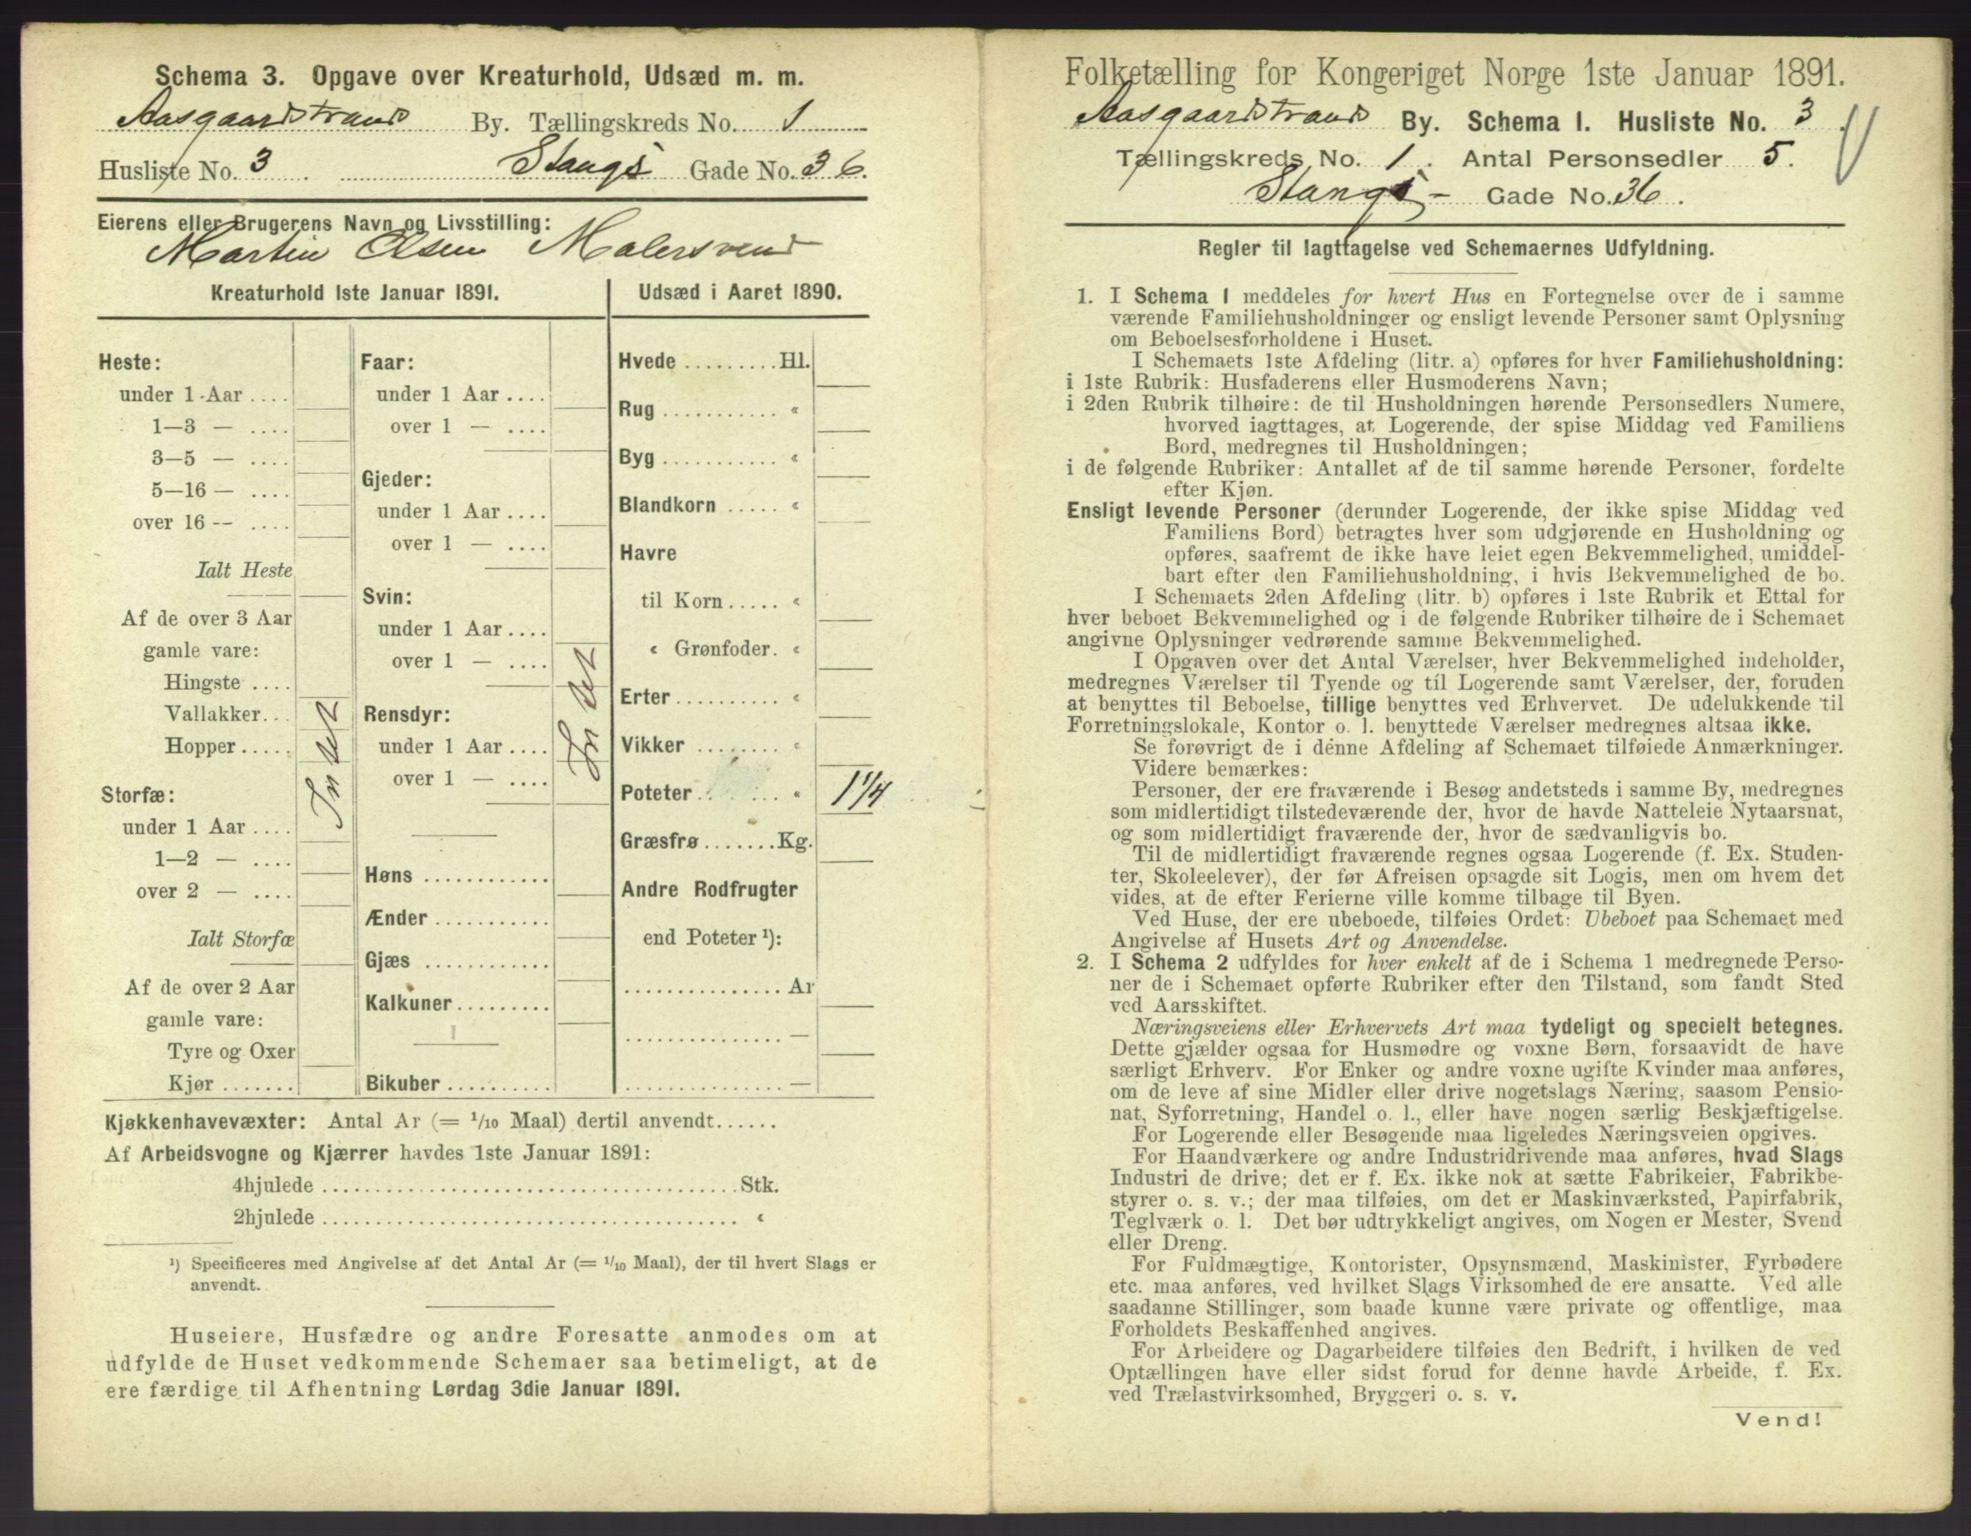 Schema 3. Opgave over Kreaturhold, Udsæd m. m.
Aasgaardstrand By. Tællingskreds No. 1
Husliste No. 3 . Stangs Gade No. 36.
Eierens eller Brugerens Navn og Livsstilling:
Martin Olsen Malersvend
Kreaturhold 1ste Januar 1891.
Heste:
under 1 Aar ....
1—3 — ....
3—5 — ....
5—16 — ....
over 16 -- ....
Ialt Heste
Af de over 3 Aar
gamle vare:
Hingste ....
Vallakker...
Hopper.....
Storfæ:
under 1 Aar ....
1—2 — ....
over 2 — ....
Ialt Storfæ
Af de over 2 Aar
gamle vare:
Tyre og Oxer
Kjør .......
Intet
Faar:
under 1 Aar ....
over 1 — ....
Gjeder:
under 1 Aar ....
over 1 — ....
Svin:
under 1 Aar....
over 1 — ....
Rensdyr:
under 1 Aar ....
over 1 — ....
Høns ............
Ænder ...........
Gjæs ............
Kalkuner .........
Bikuber ..........
Intet
Udsæd i Aaret 1890.
Hvede .........Hl.
Rug ........... «
Byg ........... «
Blandkorn ..... «
Havre
til Korn ..... «
« Grønfoder. «
Erter .......... «
Vikker ........ «
Poteter ....... « 1 1/4
Græsfrø .......Kg.
Andre Rodfrugter
end Poteter ¹):
...............Ar
...............—
...............—
Kjøkkenhavevæxter: Antal Ar (= 1/10 Maal) dertil anvendt......
Af Arbeidsvogne og Kjærrer havdes 1ste Januar 1891:
4hjulede .......................................Stk.
2hjulede ....................................... «
¹) Specificeres med Angivelse af det Antal Ar (= 1/10 Maal), der til hvert Slags er
anvendt.
Huseiere, Husfædre og andre Foresatte anmodes om at
udfylde de Huset vedkommende Schemaer saa betimeligt, at de
ere færdige til Afhentning Lørdag 3die Januar 1891.
Folketælling for Kongeriget Norge 1ste Januar 1891.
Aasgaardstrand By. Schema 1. Husliste No. 3 .
Tællingskreds No. 1 . Antal Personsedler 5.
Stangs- Gade No. 36 .
Regler til Iagttagelse ved Schemaernes Udfyldning.
1. I Schema 1 meddeles for hvert Hus en Fortegnelse over de i samme
værende Familiehusholdninger og ensligt levende Personer samt Oplysning
om Beboelsesforholdene i Huset.
I Schemaets 1ste Afdeling (litr. a) opføres for hver Familiehusholdning:
i 1ste Rubrik: Husfaderens eller Husmoderens Navn;
i 2den Rubrik tilhøire: de til Husholdningen hørende Personsedlers Numere,
hvorved iagttages, at Logerende, der spise Middag ved Familiens
Bord, medregnes til Husholdningen;
i de følgende Rubriker: Antallet af de til samme hørende Personer, fordelte
efter Kjøn.
Ensligt levende Personer (derunder Logerende, der ikke spise Middag ved
Familiens Bord) betragtes hver som udgjørende en Husholdning og
opføres, saafremt de ikke have leiet egen Bekvemmelighed, umiddel-
bart efter den Familiehusholdning, i hvis Bekvemmelighed de bo.
I Schemaets 2den Afdeling (litr. b) opføres i 1ste Rubrik et Ettal for
hver beboet Bekvemmelighed og i de følgende Rubriker tilhøire de i Schemaet
angivne Oplysninger vedrørende samme Bekvemmelighed.
I Opgaven over det Antal Værelser, hver Bekvemmelighed indeholder,
medregnes Værelser til Tyende og til Logerende samt Værelser, der, foruden
at benyttes til Beboelse, tillige benyttes ved Erhvervet. De udelukkende til
Forretningslokale, Kontor o. l. benyttede Værelser medregnes altsaa ikke.
Se forøvrigt de i denne Afdeling af Schemaet tilføiede Anmærkninger.
Videre bemærkes:
Personer, der ere fraværende i Besøg andetsteds i samme By, medregnes
som midlertidigt tilstedeværende der, hvor de havde Natteleie Nytaarsnat,
og som midlertidigt fraværende der, hvor de sædvanligvis bo.
Til de midlertidigt fraværende regnes ogsaa Logerende (f. Ex. Studen-
ter, Skoleelever), der før Afreisen opsagde sit Logis, men om hvem det
vides, at de efter Ferierne ville komme tilbage til Byen.
Ved Huse, der ere ubeboede, tilføies Ordet: Ubeboet paa Schemaet med
Angivelse af Husets Art og Anvendelse.
2. I Schema 2 udfyldes for hver enkelt af de i Schema 1 medregnede Perso-
ner de i Schemaet opførte Rubriker efter den Tilstand, som fandt Sted
ved Aarsskiftet.
Næringsveiens eller Erhvervets Art maa tydeligt og specielt betegnes.
Dette gjælder ogsaa for Husmødre og voxne Børn, forsaavidt de have
særligt Erhverv. For Enker og andre voxne ugifte Kvinder maa anføres,
om de leve af sine Midler eller drive nogetslags Næring, saasom Pensio-
nat, Syforretning, Handel o. l., eller have nogen særlig Beskjæftigelse.
For Logerende eller Besøgende maa ligeledes Næringsveien opgives.
For Haandværkere og andre Industridrivende maa anføres, hvad Slags
Industri de drive; det er f. Ex. ikke nok at sætte Fabrikeier, Fabrikbe-
styrer o. s. v.; der maa tilføies, om det er Maskinværksted, Papirfabrik,
Teglværk o. l. Det bør udtrykkeligt angives, om Nogen er Mester, Svend
eller Dreng.
For Fuldmægtige, Kontorister, Opsynsmænd, Maskinister, Fyrbødere
etc. maa anføres, ved hvilket Slags Virksomhed de ere ansatte. Ved alle
saadanne Stillinger, som baade kunne være private og offentlige, maa
Forholdets Beskaffenhed angives.
For Arbeidere og Dagarbeidere tilføies den Bedrift, i hvilken de ved
Optællingen have eller sidst forud for denne havde Arbeide, f. Ex.
ved Trælastvirksomhed, Bryggeri o. s. v.
Vend!